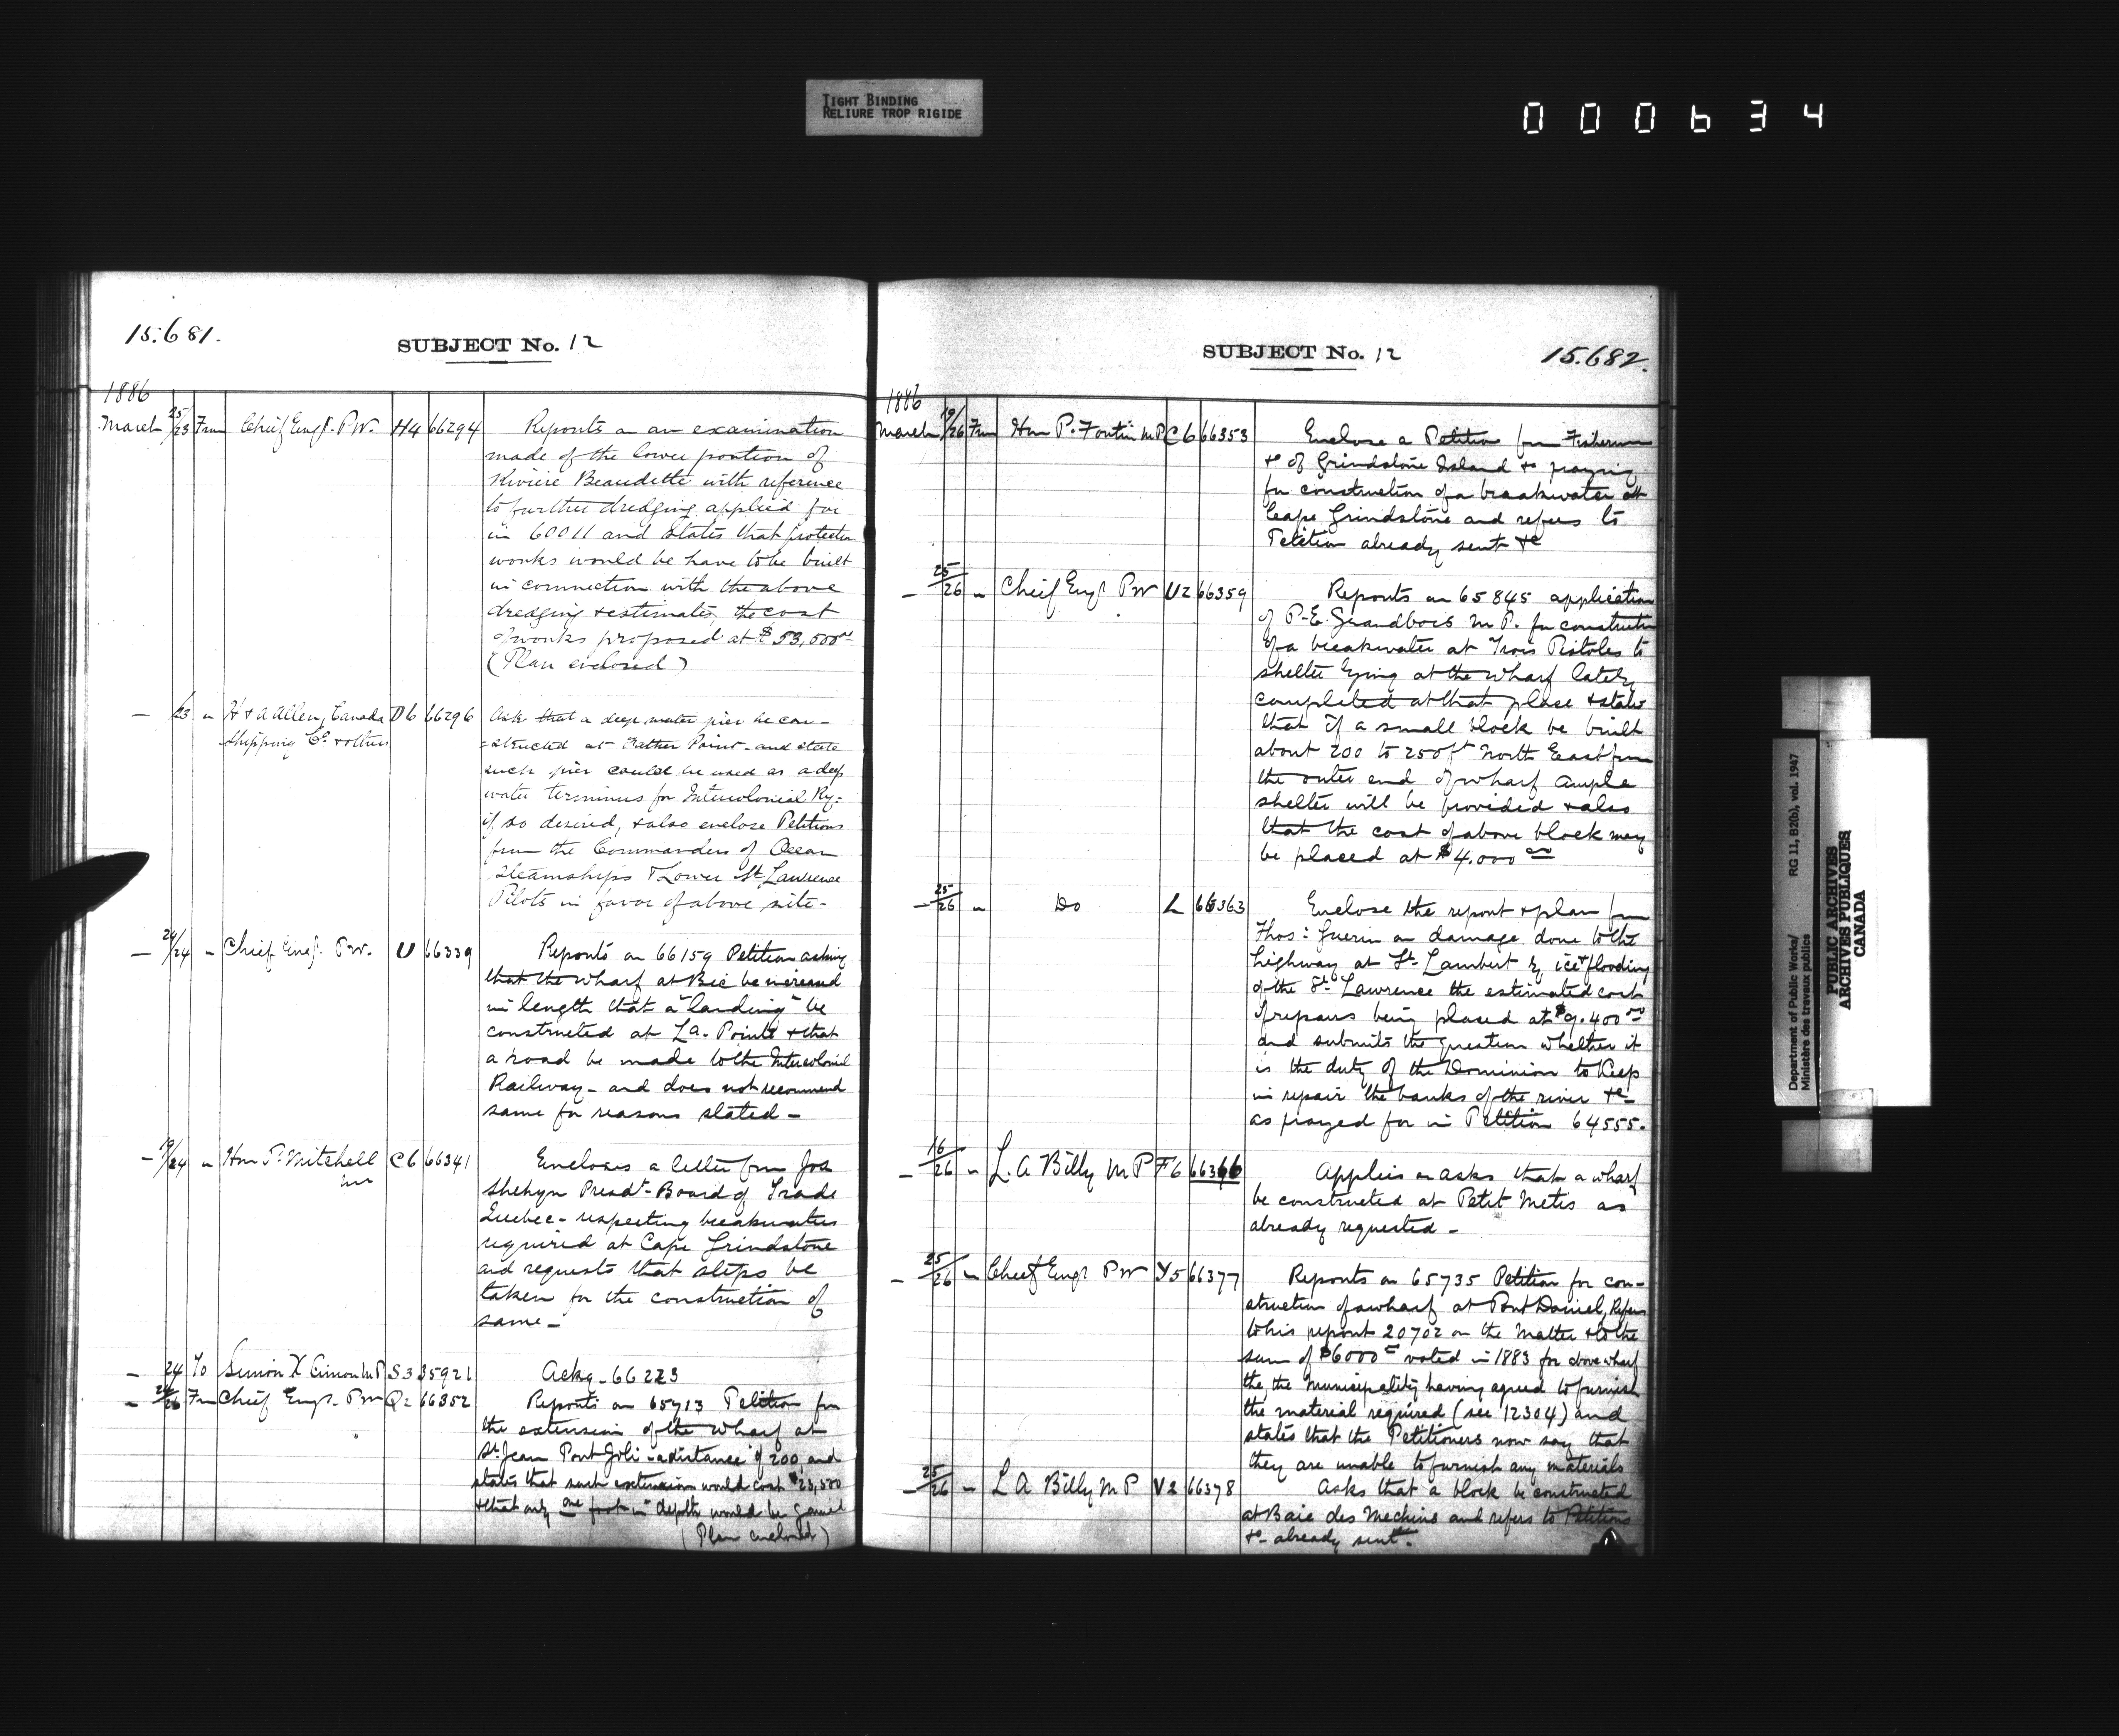 TIGHT BINDING
RELIURE TROP RIGIDE
000634
15.681.
SUBJECT No. 12
1886
March 25/23 From Chief Engr. P.W. H4 66294 Reports on an examination
made of the lower portion of
Riviere Beaudette with reference
to further dredging applied for
in 60011 and states that protection
works would be have to be built
in connection with the above
dredging & estimates the cost
of works proposed at $53,500 00
(Plan enclosed)
— /23 " H & A Allen, Canada D6 66296 Ask that a deep water pier be con-
Shipping Co. & others
=structed at Father Point - and state
such pier could be used as a deep
water terminus for Intercolonial Ry-
if so desired, & also enclose Petitions
from the Commanders of Ocean
Steamships & Lower St. Lawrence
Pilots in favor of above site -
— 24/24 " Chief Engr. P.W. U 66339 Reports on 66159 Petition asking
that the wharf at Bic be increased
in length that a "landing" be
constructed at La. Pointe & that
a road be made to the Intercolonial
Railway - and does not recommend
same for reasons stated -
— 19/24 " Hon P. Mitchell C6 66341 Encloses a letter from Jos
Shehyn Presdt. Board of Trade
Quebec - respecting breakwater
required at Cape Grindstone
and requests that steps be
taken for the construction of
same -
— 24 To Simon X Cimon M P S3 35921 Ackg - 66223
— 24/26 Fm Chief Engr. P W Q2 66352 Reports on 65713 Petition for
the extension of the wharf at
St. Jean Port Joli - a distance of 200, and
states that such extension would cost $23,500
& that only one foot in depth would be gained
(Plan enclosed)
SUBJECT No. 12
15.682.
1886
March 19/26 Fm Hon P. Fortin M P C6 66353 Enclose a Petition from Fishermen
&c of Grindstone Island &c praying
for construction of a breakwater at
Cape Grindstone and refers to
Petition already sent &c
— 25/26 " Chief Engr P W U2 66359 Reports on 65845 application
of P-E. Grandbois M P. for construction
of a breakwater at Trois Pistoles to
shelter lying at the wharf lately
completed at that place & states
that if a small block be built
about 200 to 250 ft North East from
the outer end of wharf ample
shelter will be provided & also
that the cost of above block may
be placed at $4.000 00
— 25/26 " Do L 66363 Enclose the report & plan from
Thos: Guerin on damage done to the
highway at St. Lambert by ice & flooding
of the St. Lawrence the estimated cost
of repairs being placed at $9.400 00
and submits the question whether it
is the duty of the Dominion to keep
in repair the banks of the river &c -
as prayed for in Petition 64555.
— 16/26 " L. A Billy M P F6 66366 Applies on asks that a wharf
be constructed at Petit Metis as
already requested -
— 25/26 " Chief Engr P W Y5 66377 Reports on 65735 Petition for con-
struction of a wharf at Port Daniel, Refers
to his report 20702 on the matter & to the
sum of $6000 00 voted in 1883 for above wharf
the, the Municipality having agreed to furnish
the material required (see 12304) and
states that the Petitioners now say that
they are unable to furnish any materials
— 25/26 " L A Billy M P V2 66378 Asks that a block be constructed
at Baie des Mechins and refers to Petitions
&c - already sent.
Department of Public Works/ RG 11, B2(b), vol. 1947
Ministère des travaux publics
PUBLIC ARCHIVES
ARCHIVES PUBLIQUES
CANADA